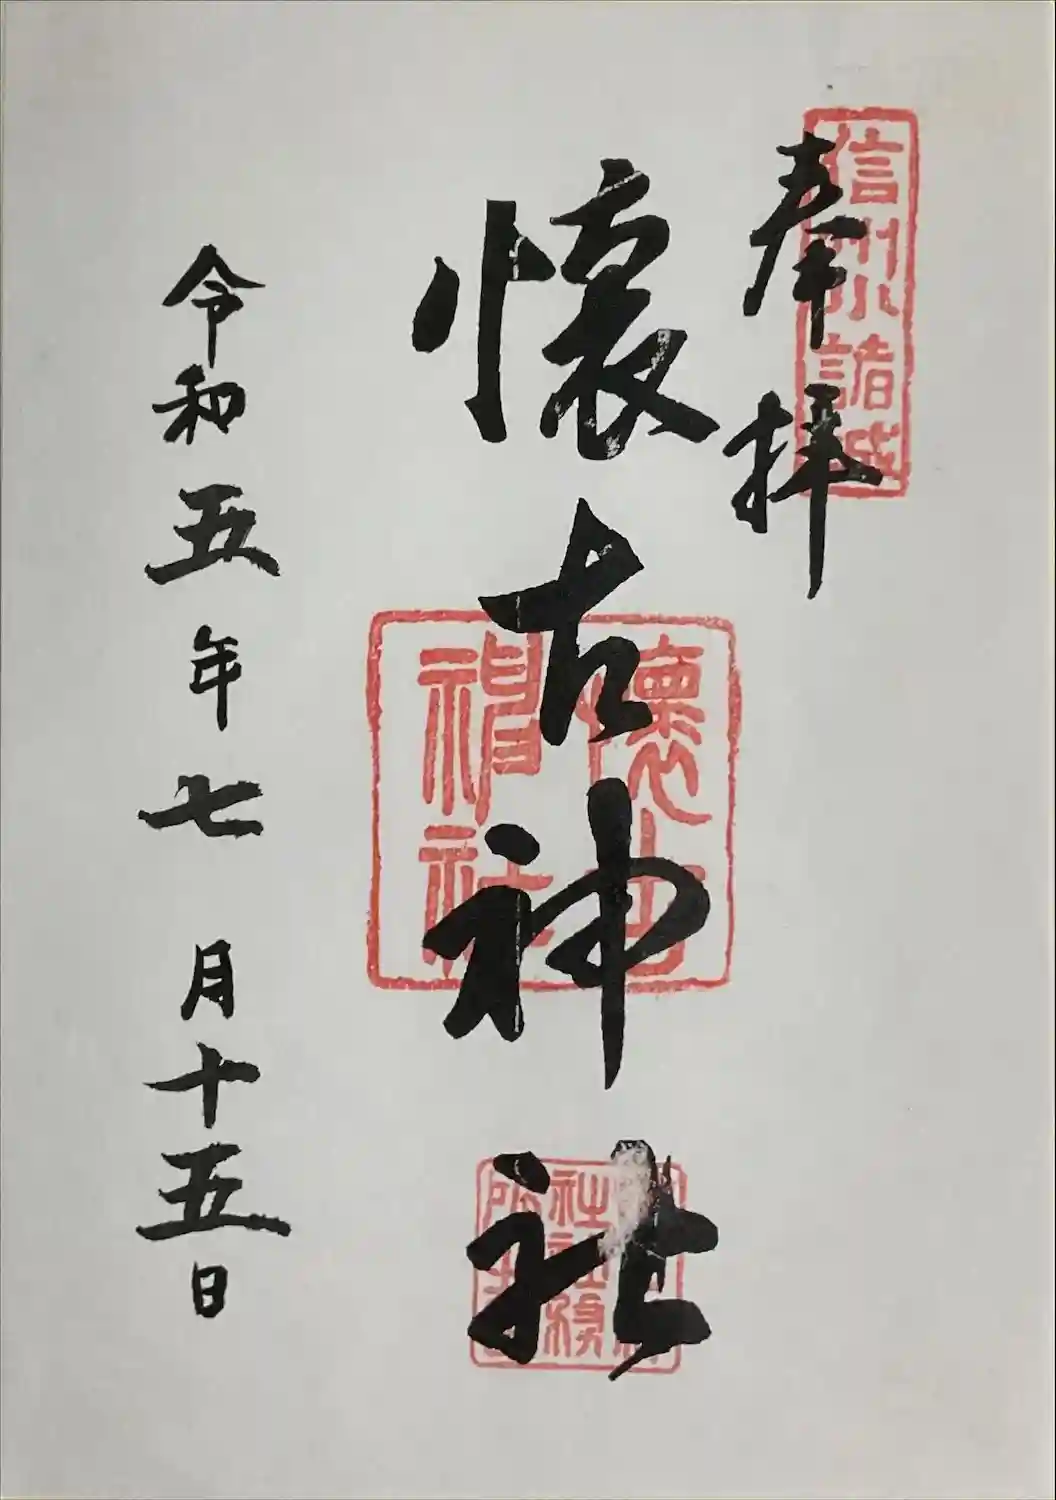 信州小諸城
奉拝
懐古神社
懐古
神社
令和五年七月十五日